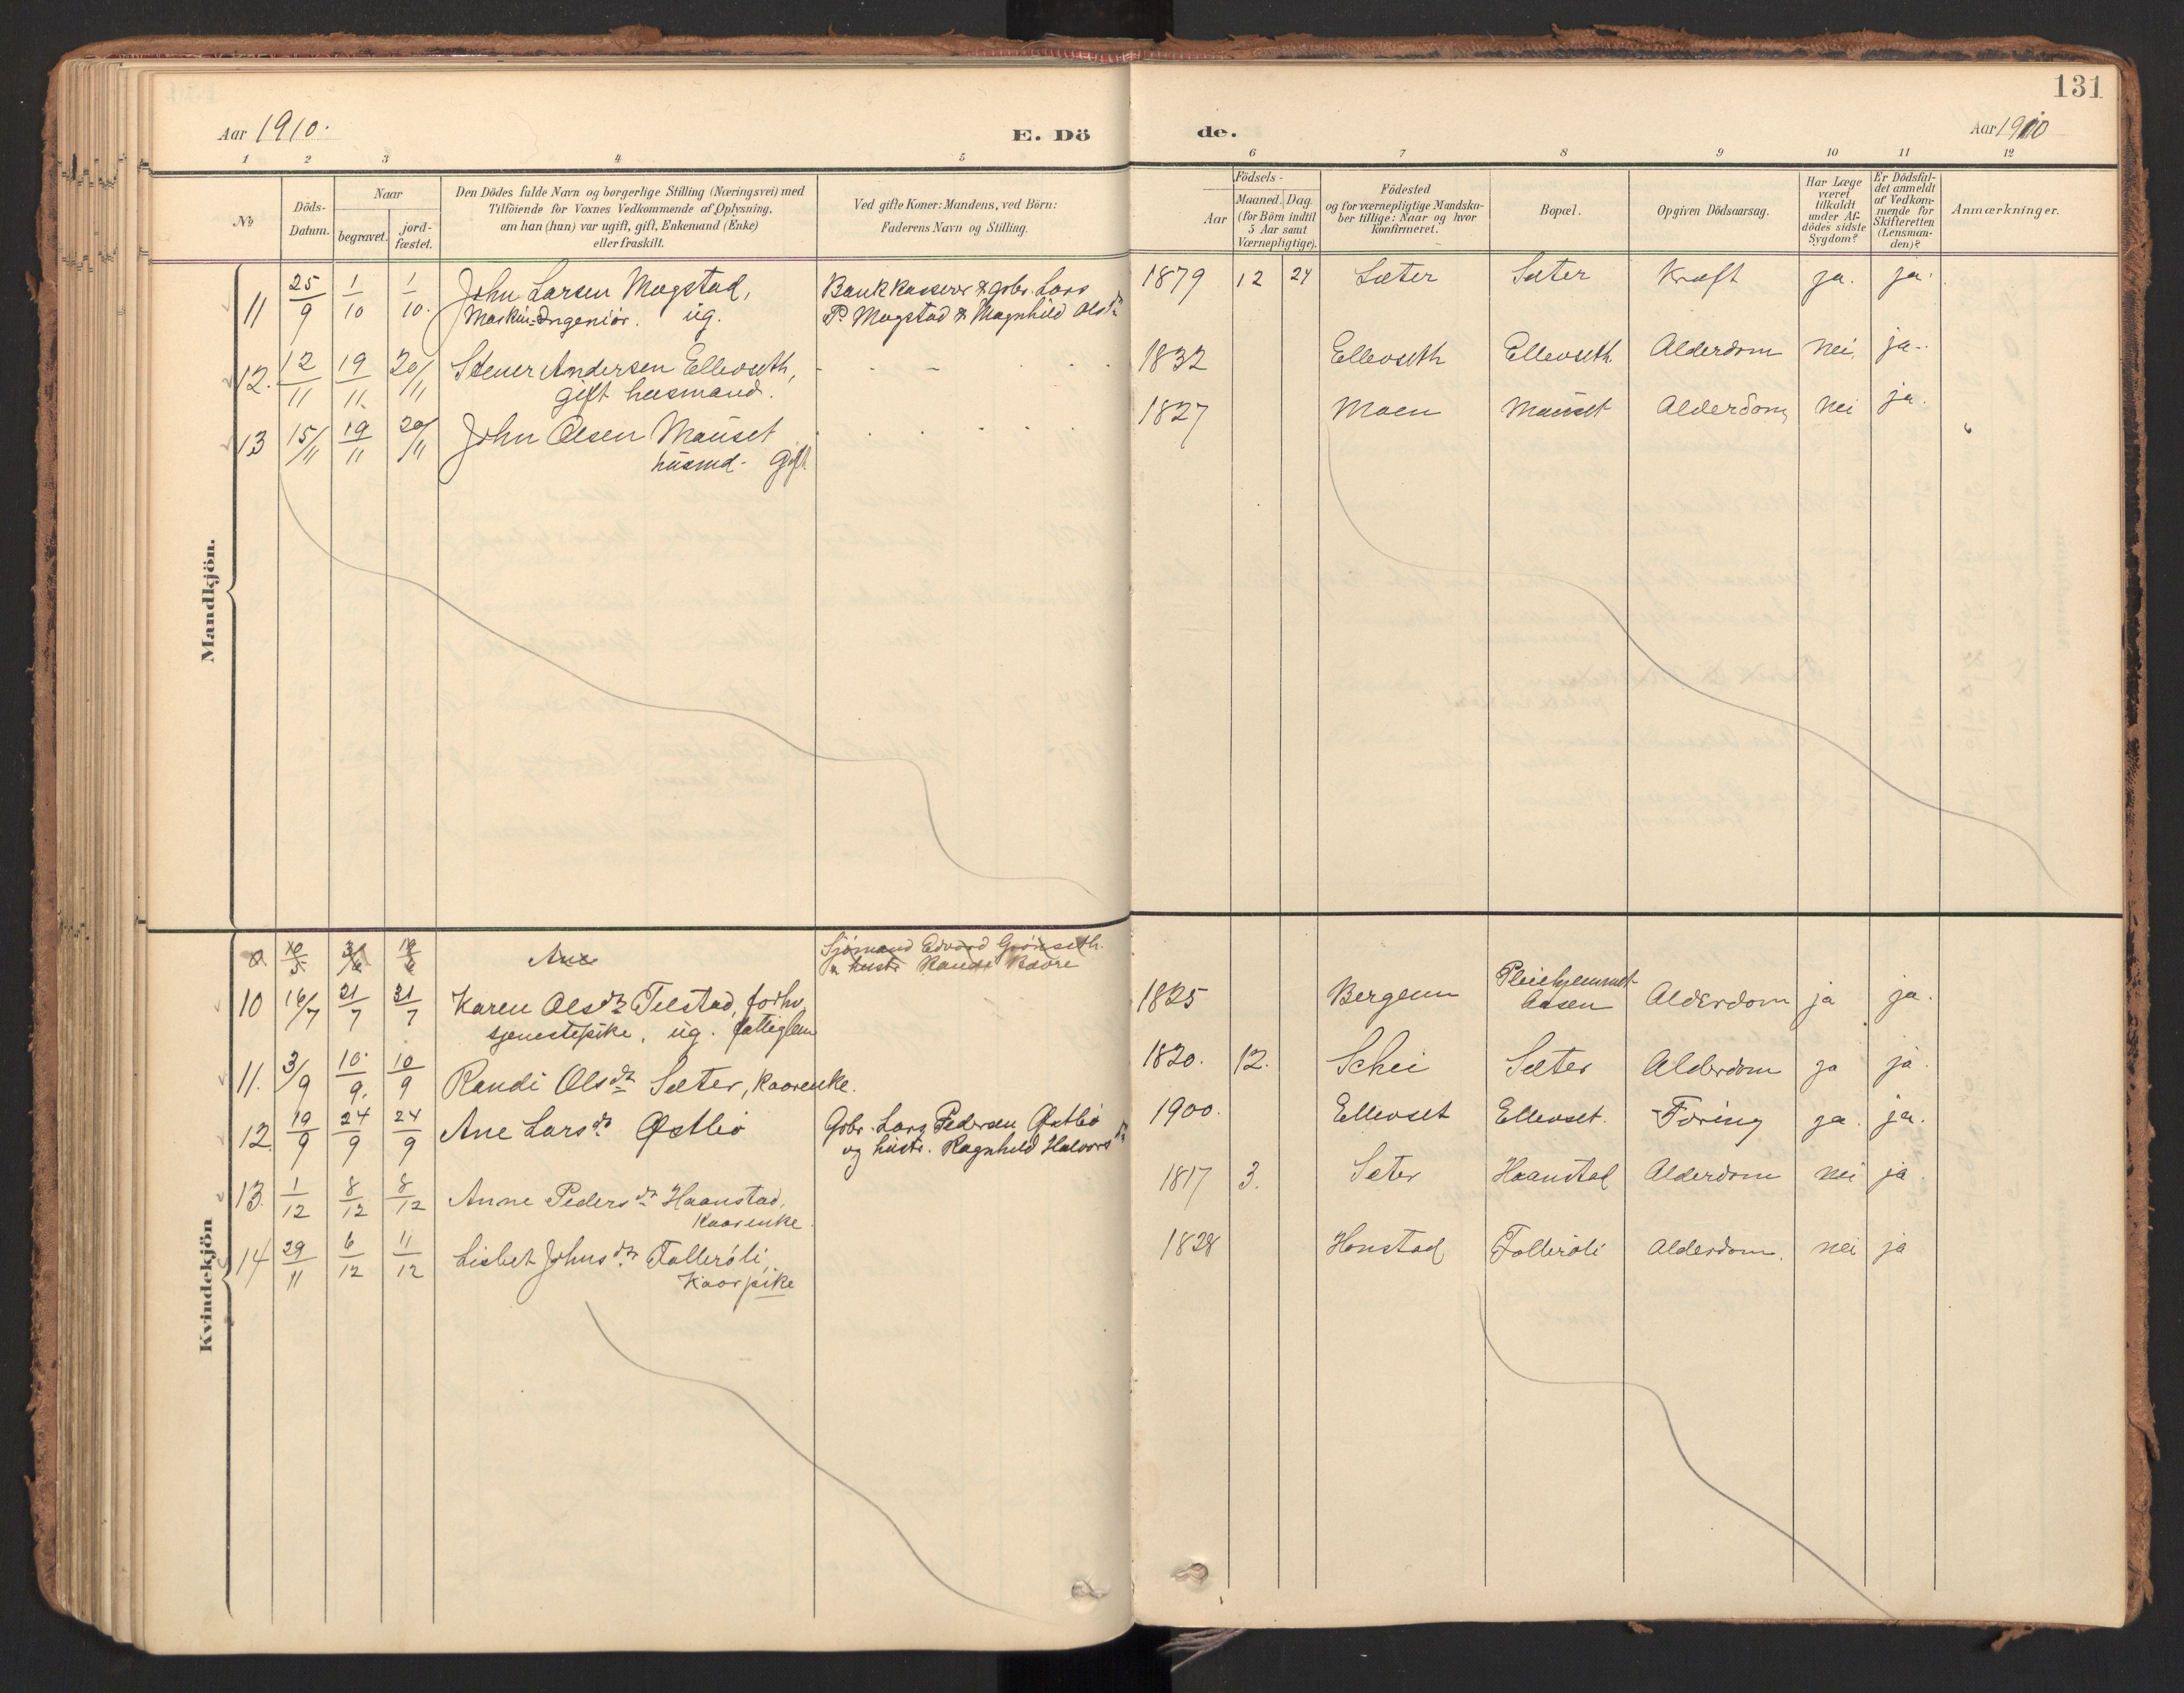 131
Aar 1910.
E. Dö
de.
Aar 1910
1 2 3 4 5 6 7 8 9 10 11 12
No
Döds-
Datum.
Naar
begravet.
jord-
fæstet.
Den Dödes fulde Navn og borgerlige Stilling (Næringsvei) med
Tilföiende for Voxnes Vedkommende af Oplysning,
om han (hun) var ugift, gift, Enkemand (Enke)
eller fraskilt.
Ved gifte Koner: Mandens, ved Börn:
Faderens Navn og Stilling.
Födsels-
Aar
Maaned. Dag.
(for Börn indtil
5 Aar samt
Værnepligtige).
Födested
og for værnepligtige Mandska-
ber tillige: Naar og hvor
konfirmeret.
Bopæl.
Opgiven Dödsaarsag.
Har Læge
været
tilkaldt
under Af-
dödes sidste
Sygdom?
Er Dödsfal-
det anmeldt
af Vedkom-
mende for
Skifteretten
(Lensman-
den)?
Anmærkninger.
Mandkjön.
11 25/9 1/10 1/10. John Larsen Mogstad, Bankkasserer & gbr. Lars 1879 12 24 Sæter Sæter Kræft ja. ja.
Maskin-Ingeniör. ug. P. Mogstad & Magnhild Olsdr
12. 12/11 19/11. 20/11 Stener Andersen Ellevseth, 1832 Ellevseth Ellevseth Alderdom nei, ja.
gift husmand.
13 15/11 19/11 20/11 John Olsen Mauset 1827 Moen Mauset Alderdom nei ja.
husmd. Gift
Kvindekjön
Ane Sjömand Edvard Grönseth.
& hustr Randi Kaare
10 16/7 21/7 31/7 Karen Olsdr Tilstad, forhv. 1825 Bergem Pleiehjemmet Aasen Alderdom ja ja.
tjenestepike, ug. fattiglem
11. 3/9 10/9. 10/9 Randi Olsdr Sæter, Kaarenke. 1820. 12. Schei Sæter Alderdom ja ja.
12. 19/9 24/9 24/9 Ane Larsdr Østbö Gbr. Lars Pedersen Østbö 1900. Ellevset Ellevset. Tæring ja. ja.
og hustr. Ragnhild Halvorsdr
13. 1/12 8/12 8/12 Anne Pedersdr Haanstad, 1817 3. Sæter Haanstad Alderdom nei ja.
Kaarenke.
14 29/11 6/12 11/12 Lisbet Johnsdr Tolleröli, 1828 Honstad Tolleröli Alderdom. nei ja
Kaarpike